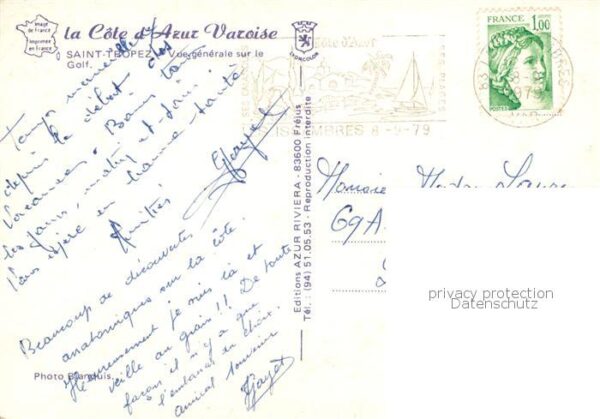 Image
de France
Imprimée
en France
la Côte d'Azur Varoise
SAINT-TROPEZ - Vue générale sur le
Golf.
LYONCOLOR
Temps merveilleux
depuis le début des
vacances. Bains tous
les jours, matin et soir!
Vous espère en bonne santé
Amitiés
Beaucoup de découvertes
anatomiques sur la côte.
Heureusement je suis là et
veille au grain!! De toute
façon il n'y a que
l'embarras du choix.
Amical souvenir
Photo
Editions AZUR RIVIERA - 83600 Fréjus
Tél.: (94) 51.05.53 - Reproduction interdite
ISSAMBRES 8-9-79
FRANCE
1,00
83
Monsieur Madame
69A
privacy protection
Datenschutz